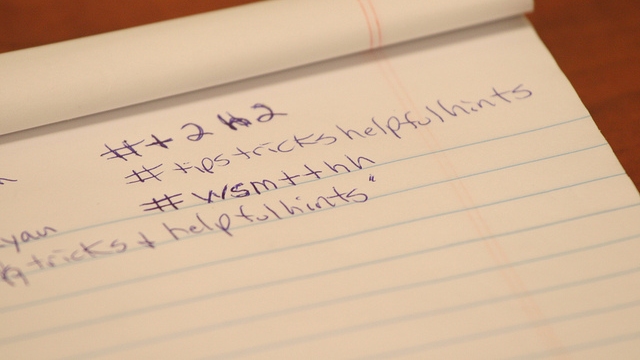 #t2h2
#tipstrickshelpfulhints
#wsmtthh
yan
tricks & helpfulhints"